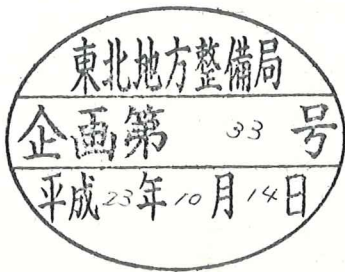 東北地方整備局
企画第 33 号
平成23年10月14日